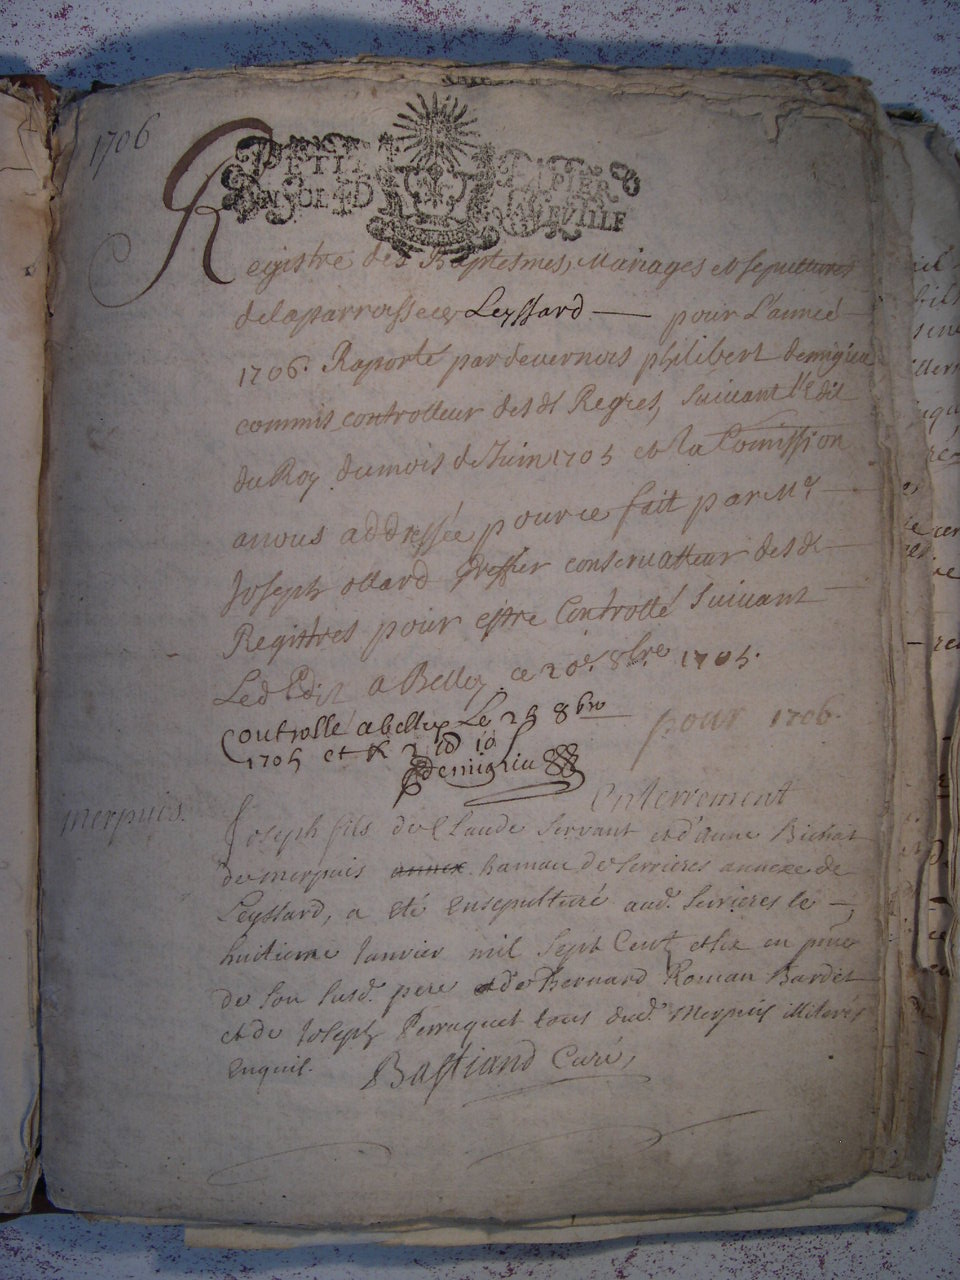 1706
PETIT PAPIER
UN SOL 4 D LA FEUILLE
Registre des Baptesmes, Mariages et sepultures
de la parroisse de Leyssard — pour L'année
1706. Raporté pardevernous philibert demigieu
commis controlleur desd Regres, suivant l'Edit
du Roy du mois de Juin 1705 et la Comission
a nous addressée pour ce fait par Mr
Joseph ollard greffier conservatteur desd
Registres pour estre Controllé suivant
Led Edit a Belley ce 20e 8bre 1705.
Controllé a belley Le 28 8bre pour 1706.
1705 et
Demigieu
Enterrement
merpuis.
Joseph fils de Claude Servant et d'anne Bichat
de merpuis annex hamau de Serrieres annexe de
Leyssard, a eté ensepulturé aud. Serrieres le
huitieme Janvier mil sept Cent et six en pnce
de son susd. pere et de Bernard Roman Bardet
et de Joseph Perruquet tous dud. Merpuis illiterés
enquis.
Bastiand Curé,